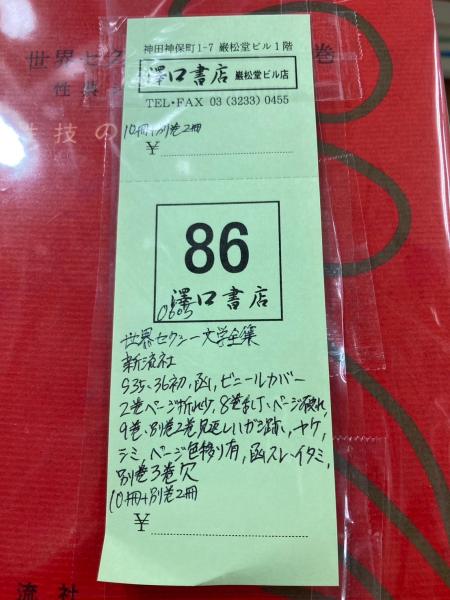 世界セク
巻
性典
性技の
神田神保町1-7 巌松堂ビル1階
澤口書店 巌松堂ビル店
TEL・FAX 03 (3233) 0455
10冊+別巻2冊
¥
86
澤口書店
0605
世界セクシー文学全集
新流社
S35、36初、函、ビニールカバー
2巻ページ折れ少、8巻
ページ破れ、
9巻、別巻2巻見返しハガシ跡、ヤケ、
シミ、ページ色移り有、函スレ・イタミ、
別巻3巻欠
10冊+別巻2冊
¥
流社